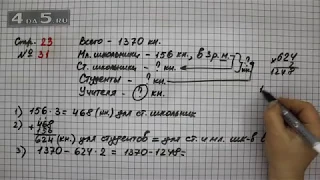 4 ДА 5.RU
Стр. 23 Всего - 1370 кн.
№ 31 Мл. школьники - 156 кн., в 3 р. м.
Ст. школьники - ? кн.
Студенты - ? кн.
Учителя - ? кн.
×624
2
1248
1) 156·3 = 468 (кн.) для ст. школьник
2) +468
156
624 (кн.) для студентов = для ст. и мл. шк-в в
3) 1370 - 624·2 = 1370 - 1248 =